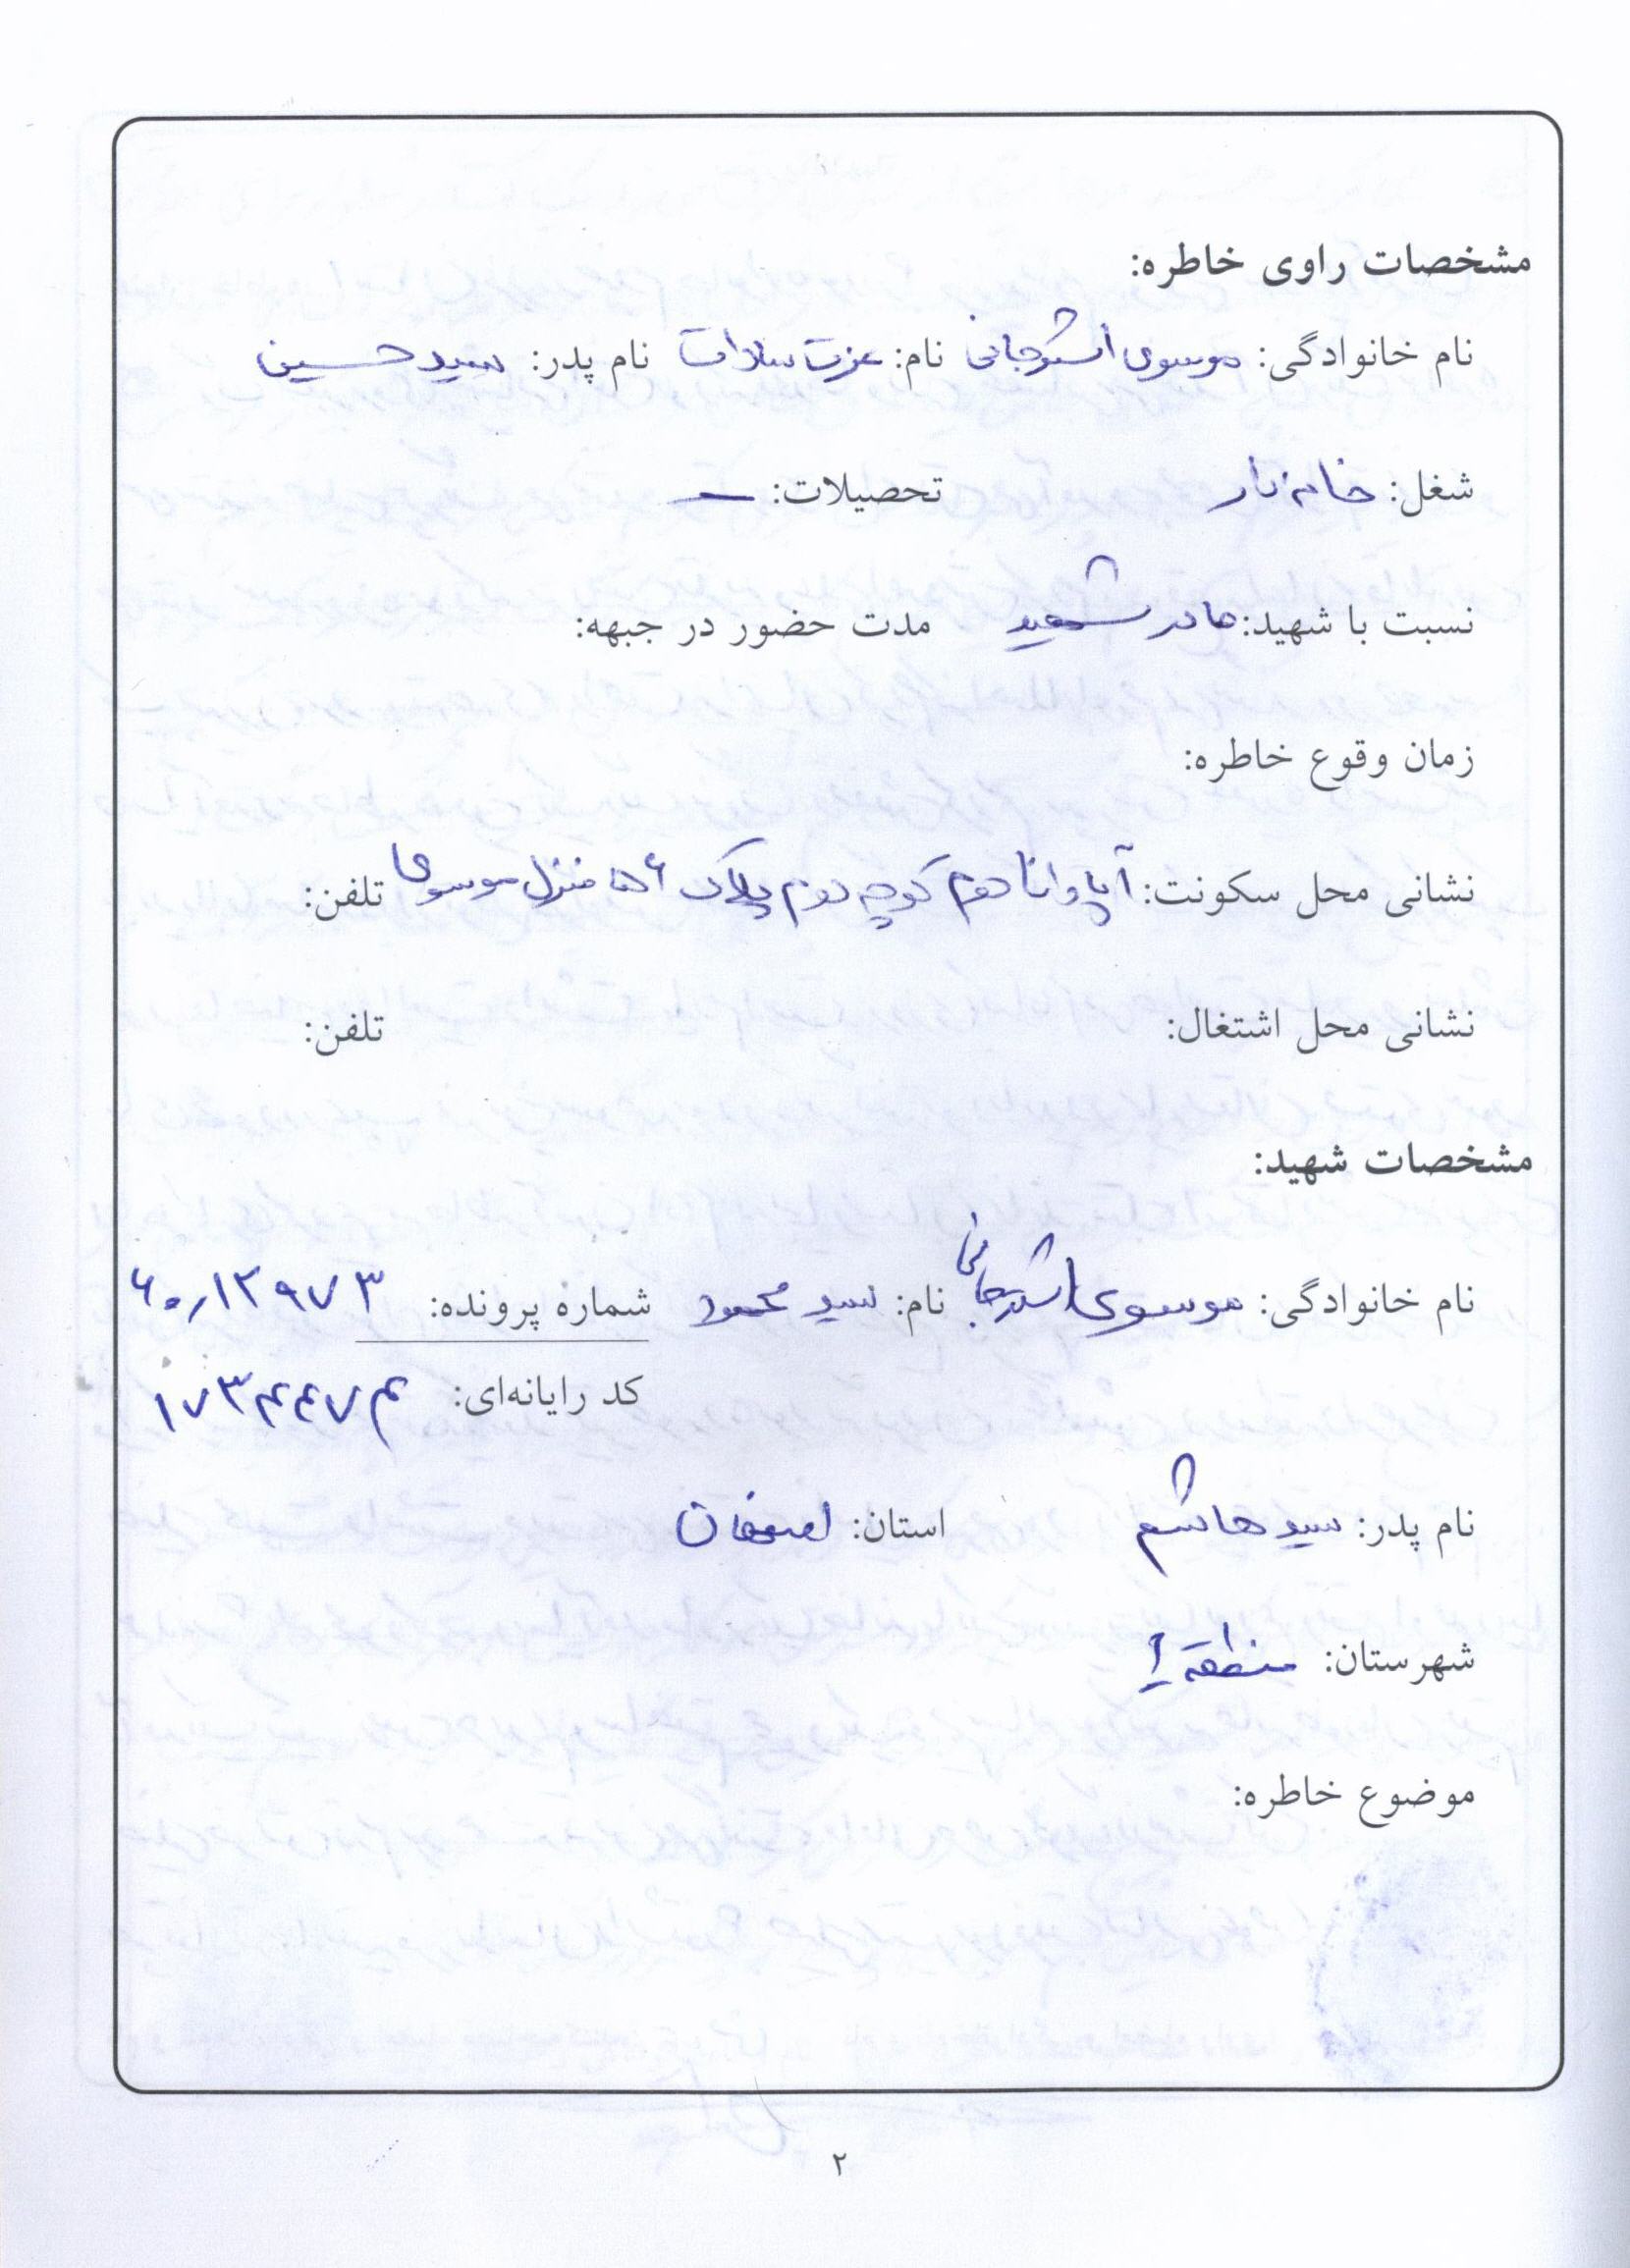 مشخصات راوی خاطره:
نام خانوادگی: موسوی اشترجانی نام: عزت سادات نام پدر: سید حسین
شغل: خانه دار تحصیلات: ــ
نسبت با شهید: مادر شهید مدت حضور در جبهه:
زمان وقوع خاطره:
نشانی محل سکونت: آپادانا دوم کوچه دوم پلاک ۵۶ منزل موسوی تلفن:
نشانی محل اشتغال: تلفن:
مشخصات شهید:
نام خانوادگی: موسوی اشترجانی نام: سید محمود شماره پرونده: ۶۰٫۱۲۹۷۳
کد رایانه‌ای: ۱۷۳۴۴۷۴
نام پدر: سید هاشم استان: اصفهان
شهرستان: منطقه ۱
موضوع خاطره:
۲